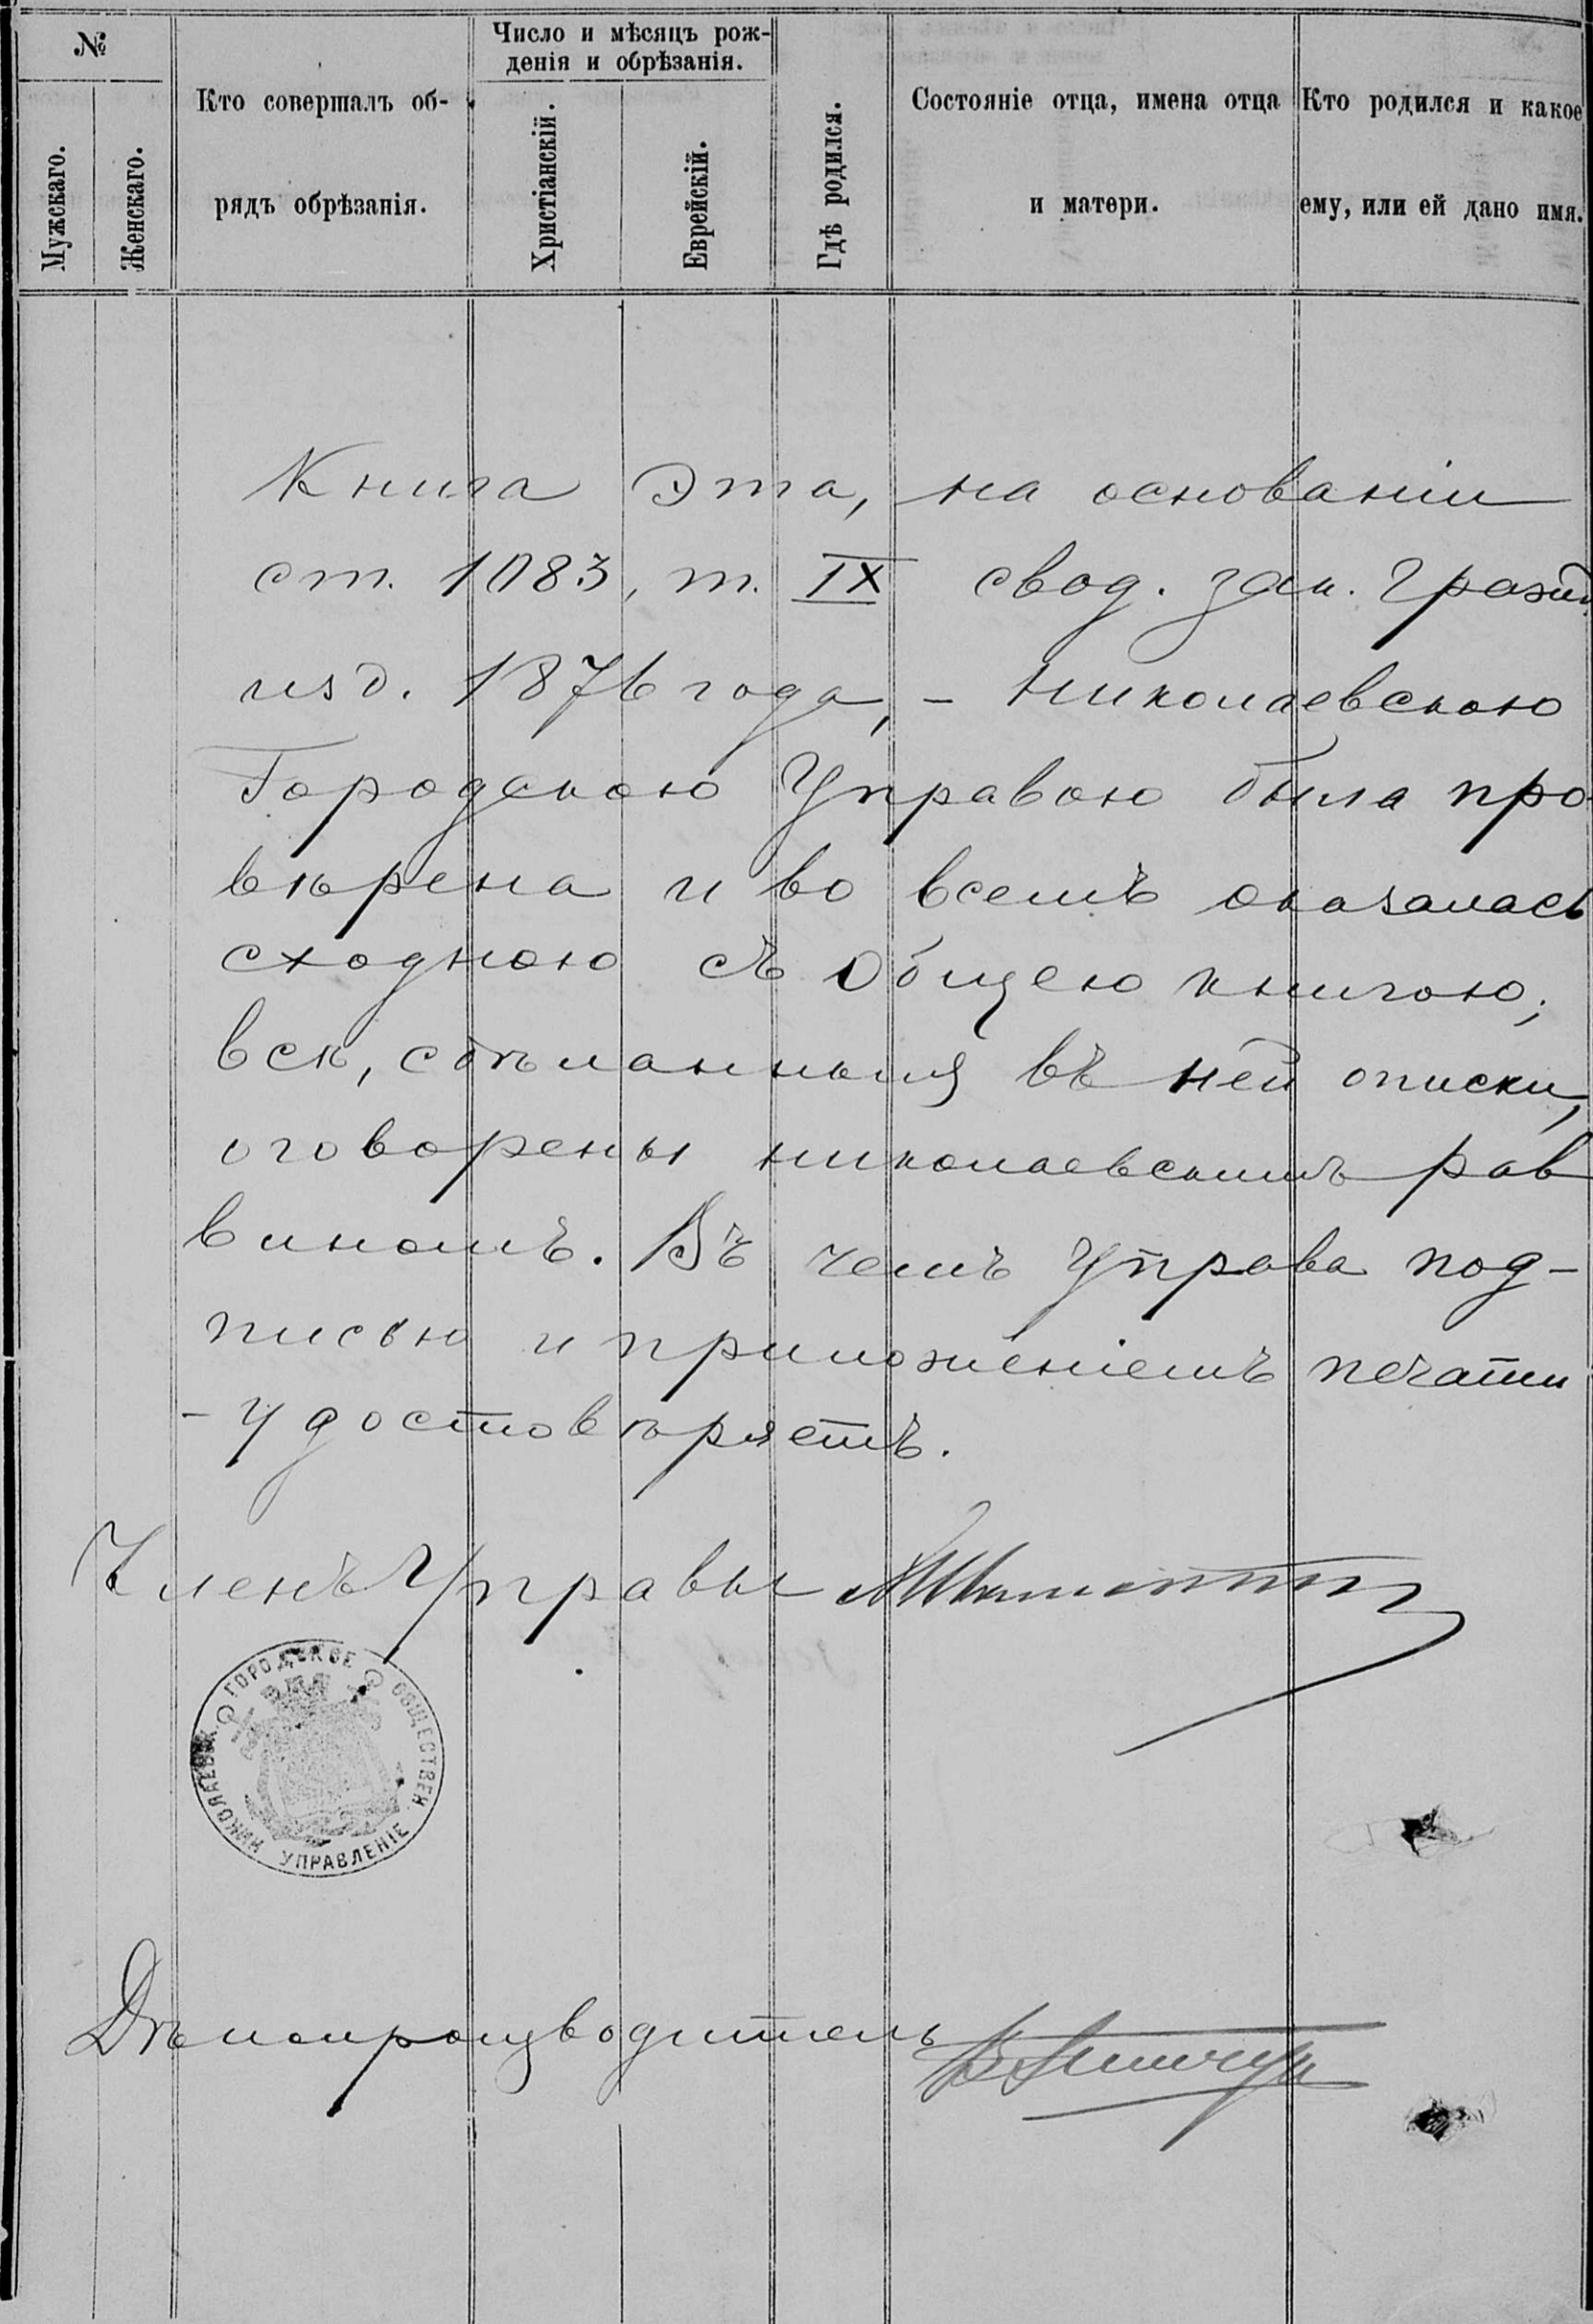 №
Мужскаго.
Женскаго.
Кто совершалъ об-
рядъ обрѣзанія.
Число и мѣсяцъ рож-
денія и обрѣзанія.
Христіанскій.
Еврейскій.
Гдѣ родился.
Состояніе отца, имена отца
и матери.
Кто родился и какое
ему, или ей дано имя.
Книга эта, на основаніи
ст. 1083, т. IX свод. зак. гражд.
изд. 1876 года, - Николаевскою
Городскою Управою была про-
вѣрена и во всемъ оказалась
сходною съ общею книгою;
всѣ, сдѣланныя въ ней описки,
оговорены николаевскимъ рав
виномъ. Въ чемъ Управа под-
писью и приложеніемъ печати
- удостовѣряетъ.
Членъ Управы
НИКОЛАЕВСК. ГОРОДСКОЕ ОБЩЕСТВЕН. УПРАВЛЕНІЕ
Дѣлопроизводитель